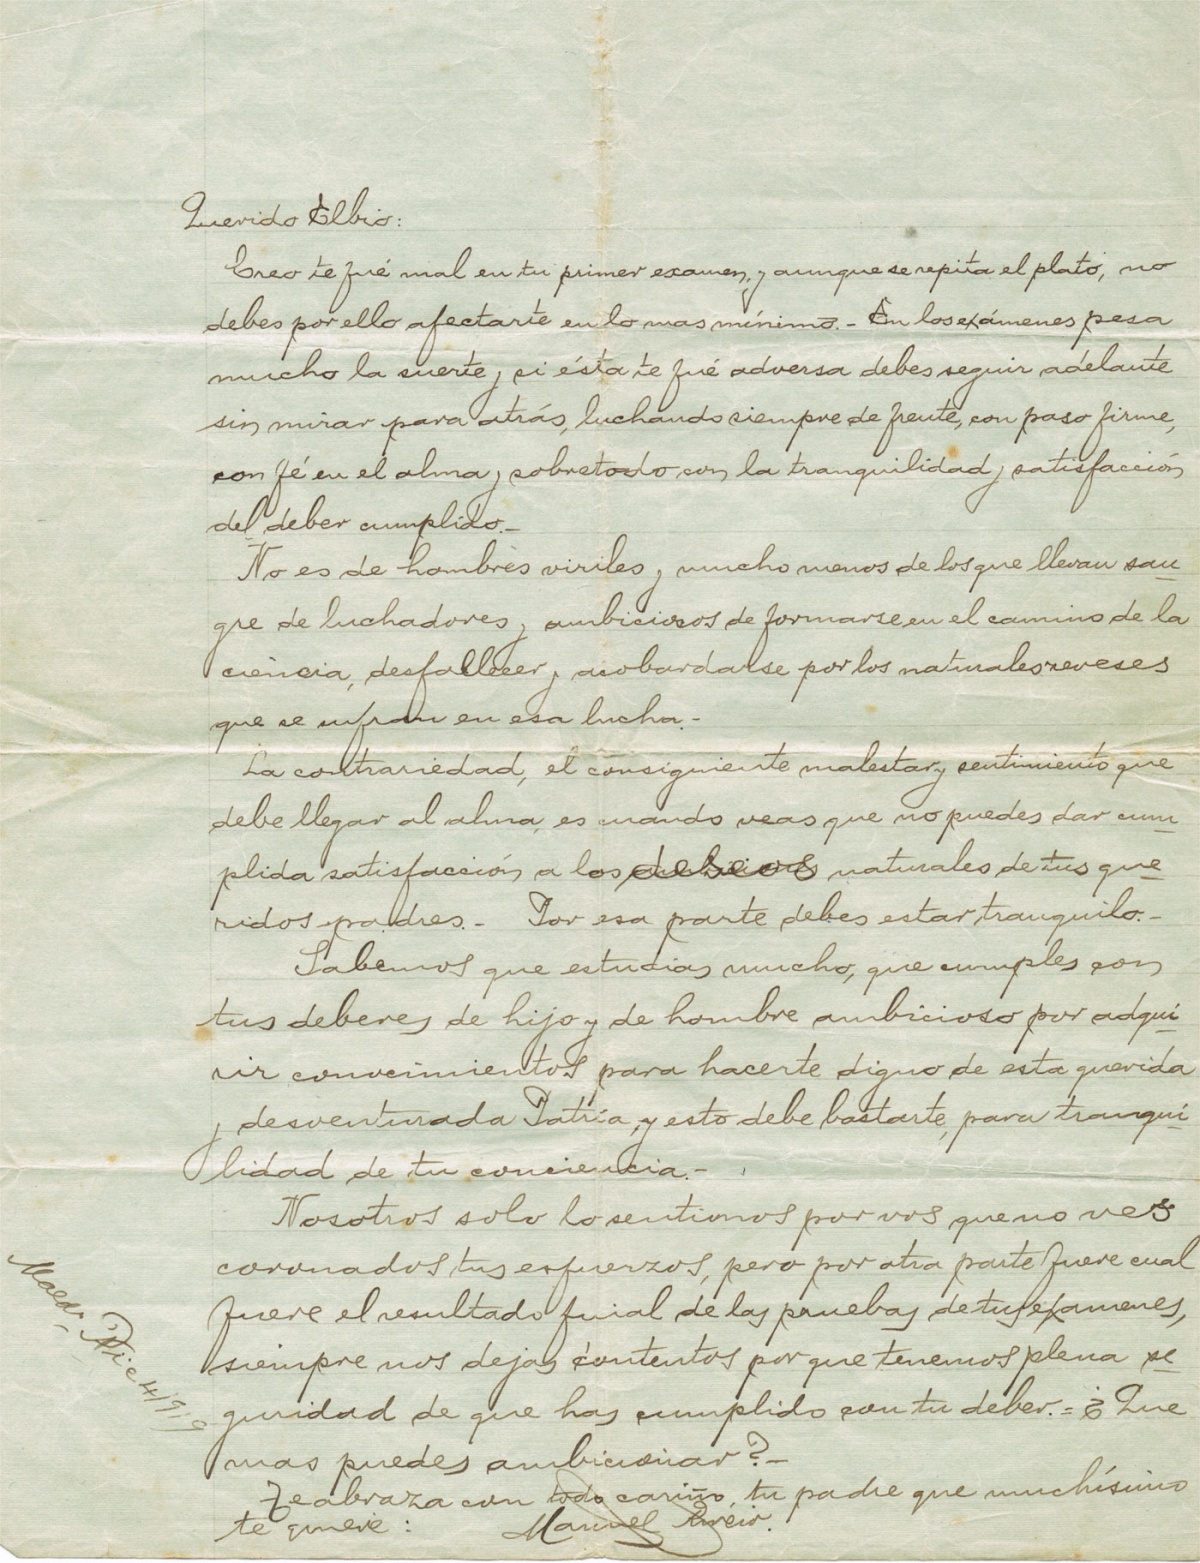 Querido Elbio:
Creo te fué mal en tu primer examen, y aunque se repita el plato, no
debes por ello afectarte en lo mas mínimo.- En los exámenes pesa
mucho la suerte y si ésta te fué adversa debes seguir adelante
sin mirar para atrás, luchando siempre de frente, con paso firme,
con fé en el alma y sobretodo con la tranquilidad y satisfacción
del deber cumplido.-
No es de hombres viriles y mucho menos de los que llevan san-
gre de luchadores y ambiciosos de formarse en el camino de la
ciencia, desfallecer y acobardarse por los naturales reveses
que se sufran en esa lucha.-
La contrariedad, el consiguiente malestar y sentimiento que
debe llegar al alma, es cuando veas que no puedes dar cum-
plida satisfacción a los deseos naturales de tus que-
ridos padres.- Por esa parte debes estar tranquilo.-
Sabemos que estudias mucho, que cumples con
tus deberes de hijo y de hombre ambicioso por adqui-
rir conocimientos para hacerte digno de esta querida
y desventurada Patria, y esto debe bastarte, para tranqui-
lidad de tu conciencia.-
Nosotros solo lo sentimos por vos que no ves
coronados tus esfuerzos, pero por otra parte fuere cual
fuere el resultado final de las pruebas de tus exámenes,
siempre nos dejas contentos por que tenemos plena se-
guridad de que has cumplido con tu deber.= ¿Que
mas puedes ambicionar?-
Te abraza con todo cariño, tu padre que muchísimo
te quiere: Manuel
Dic 4/919